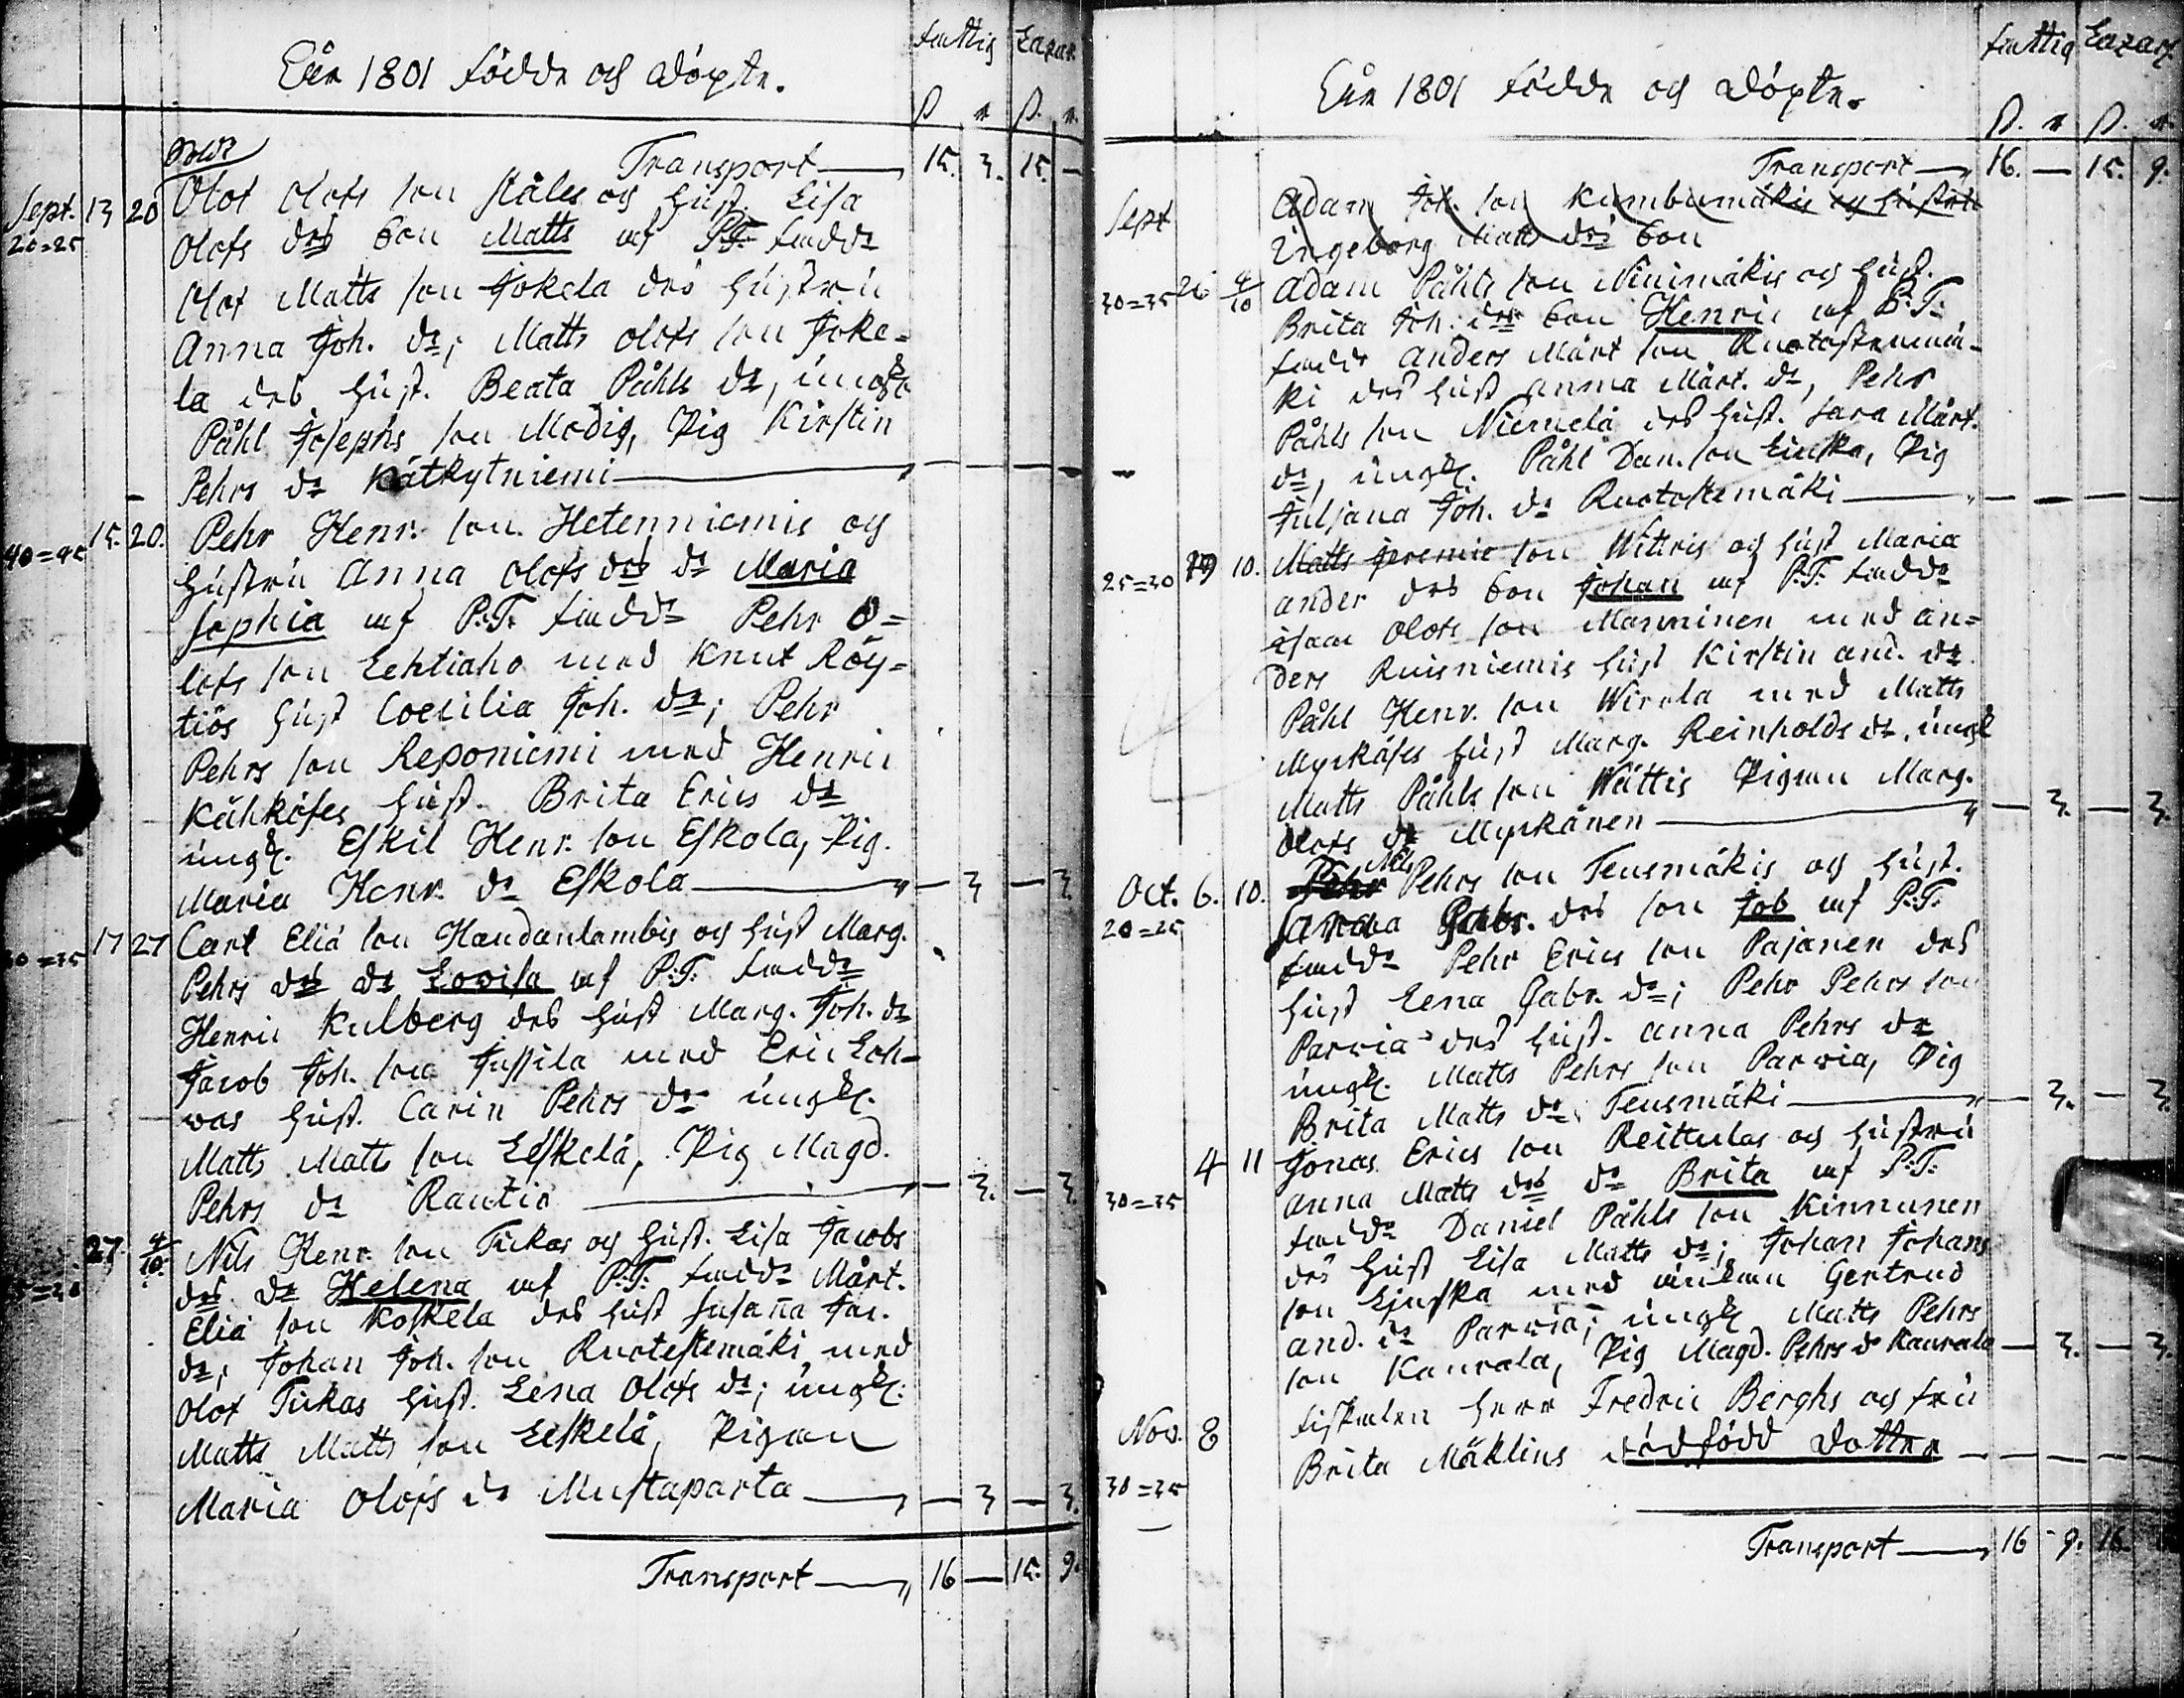 fattig Lazar.
Åhr 1801 födde och döpte.
ß r ß. r.
Sold.
Transport 15. 3. 15. —
Sept. 13 20 Olof Olofs son Ståles och Hust. Lisa
20=25 Olofs drs Son Matts af P:T. Fadd:r
Olof Matts son Jokela des hustru
Anna Joh. dr; Matts Olofs son Joke=
la des Hust. Beata Påhls dr, ungk.
Påhl Josephs son Modig, Pig Kirstin
Pehrs dr Kätkytniemi — — — —
15. 20. Pehr Henr. son Hetenniemis och
40=45 hustru Anna Olofs drs dr Maria
Sophia af P:T. Fadd:r Pehr O=
lofs son Lehtiaho med Knut Röy=
tiös hust Coecilia Joh. dr; Pehr
Pehrs son Reponiemi med Henric
Kähköses Hust. Brita Erics dr
ungk. Eskil Henr. son Eskola, Pig.
Maria Henr. dr Eskola — 3 — 3.
17 27 Carl Eliæ son Haudanlambis och hust Marg.
30=35 Pehrs drs dr Lovisa af P:T. Fadd:r
Henric Kulberg des hust Marg. Joh. dr
Jacob Joh. son Jussila med Eric Loh-
vas hust. Carin Pehrs dr ungk.
Matts Matts son Leskelä, Pig Magd.
Pehrs dr Rautio — 3. — 3.
27. 4/10. Nils Henr. son Tikas och Hust. Lisa Jacobs
drs dr Helena af P:T. Fadd:r Mårt.
Eliæ son Koskela des hust Susanna Jac.
dr; Johan Joh. son Ruotestemäki med
Olof Tikas hust. Lena Olofs dr; ungk.
Matts Matts son Leskelä, Pigan
Maria Olofs dr Mustaparta — 3 — 3.
Transport 16 — 15. 9.
fattig Lazar.
Åhr 1801 födde och döpte.
ß. r ß. r.
Transport 16. — 15. 9.
Sept Adam Joh. son Kumbumäkis och hustru
Ingeborg Matts drs Son
30=35 26 4/10 Adam Påhls son Ninimäkis och hust.
Brita Joh. drs Son Henric af P:T.
Fadd:r Anders Mårt son Ruotostenmä-
ki des hust Anna Mårt. dr, Pehr
Påhls son Niemelä des hust. Sara Mårt.
dr, ungk. Påhl Dan. son Linska, Pig
Juliana Joh. dr Ruotostemäki — — — —
25=30 19 10. Matts Jeremiæ son Wittris och hust Maria
Ander drs Son Johan af P:T. Fadd:r
Isaac Olofs son Manninen med An=
ders Ruisniemis hust Kirstin And. dr
Påhl Henr. son Wirela med Matts
Myrkäses hust Marg. Reinholds dr, ungk
Matts Påhls son Wättis Pigan Marg.
Olofs dr Myrkänen — 3. — 3.
Nils
Oct. 6. 10. Pehr Pehrs son Teusmäkis och hust.
20=25 Gabr. drs son Job af P:T.
Fadd:r Pehr Erics son Pajanen des
hust Lena Gabr. dr; Pehr Pehrs son
Parvia des hust. Anna Pehrs dr
ungk. Matts Pehrs son Parvia, Pig
Brita Matts dr Teusmäki — 3. — 3.
4 11 Jonas Erics son Reittulas och hustru
30=35 Anna Matts drs dr Brita af P:T.
Fadd:r Daniel Påhls son Kinnunen
des hust Lisa Matts dr; Johan Johans
son Ljuska med änkan Gertrud
And. dr Parvia; ungk Matts Pehrs
son Kaurala, Pig Magd. Pehrs dr Kaurala — 3. — 3.
Nov. 8 Fiskalen herr Fredric Berghs och fru
30=35 Brita Mäklins dödfödd dotter — — — —
Transport 16 9. 16.